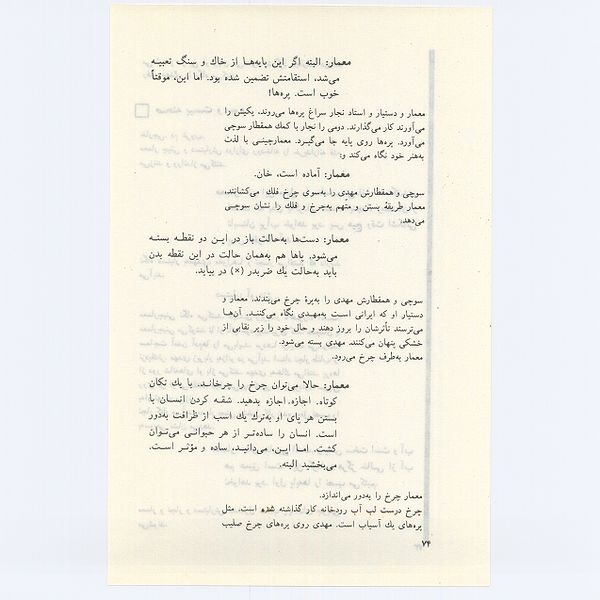 معمار: البته اگر این پایه‌ها از خاک و سنگ تعبیه
می‌شد، استقامتش تضمین شده بود. اما این، موقتاً
خوب است. پره‌ها!
معمار و دستیار و استاد نجار سراغ پره‌ها می‌روند. یکیش را
می‌آورند کار می‌گذارند. دومی را نجار با کمک همقطار سوچی
می‌آورد. پره‌ها روی پایه جا می‌گیرد. معمارچینی با لذت
به‌هنر خود نگاه می‌کند و:
معمار: آماده است، خان.
سوچی و همقطارش مهدی را به‌سوی چرخ فلک می‌کشانند.
معمار طریقهٔ بستن و متّهم به‌چرخ و فلک را نشان سوچی
می‌دهد.
معمار: دست‌ها به‌حالت باز در این دو نقطه بسته
می‌شود. پاها هم به‌همان حالت در این نقطه بدن
باید به‌حالت یك ضربدر (×) در بیاید.
سوچی و همقطارش مهدی را به‌پرهٔ چرخ می‌بندند. معمار و
دستیار او که ایرانی است به‌مهدی نگاه می‌کنند. آن‌ها
می‌ترسند تأثرشان را بروز دهند و حال خود را زیر نقابی از
خشکی پنهان می‌کنند. مهدی بسته می‌شود.
معمار به‌طرف چرخ می‌رود.
معمار: حالا می‌توان چرخ را چرخاند. با یك تکان
کوتاه. اجازه. اجازه بدهید. شقه کردن انسان با
بستن هر پای او به‌ترك یك اسب از ظرافت به‌دور
است. انسان را ساده‌تر از هر حیوانی می‌توان
کشت. اما این، می‌دانید، ساده و مؤثر است.
می‌بخشید البته.
معمار چرخ را به‌دور می‌اندازد.
چرخ درست لب آب رودخانه کار گذاشته شده است. مثل
پره‌های یك آسیاب است. مهدی روی پره‌های چرخ صلیب
۷۴